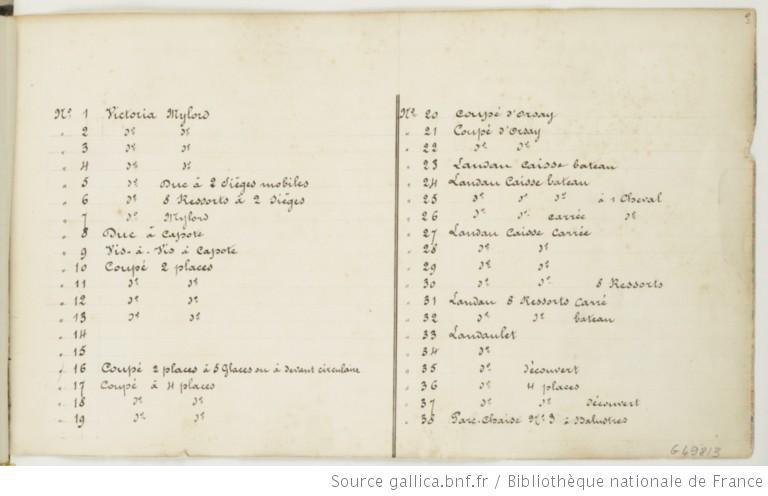 3
Nos 1 Victoria Mylord
" 2 do do
" 3 do do
" 4 do do
" 5 do Duc à 2 Sièges mobiles
" 6 do 8 Ressorts à 2 Sièges
" 7 do Mylord
" 8 Duc à Capote
" 9 Vis-à-Vis à Capote
" 10 Coupé 2 places
" 11 do do
" 12 do do
" 13 do do
" 14
" 15
" 16 Coupé 2 places à 5 Glaces ou à devent circulaire
" 17 Coupé à 4 places
" 18 do do
" 19 do do
Nos 20 Coupé d'Orsay
" 21 Coupé d'Orsay
" 22 do do
" 23 Landau Caisse bateau
" 24 Landau Caisse bateau
" 25 do do do à 1 Cheval
" 26 do do carrée do
" 27 Landau Caisse Carrée
" 28 do do
" 29 do do
" 30 do do 8 Ressorts
" 31 Landau 8 Ressorts Carré
" 32 do do bateau
" 33 Landaulet
" 34 do
" 35 do découvert
" 36 do 4 places
" 37 do do découvert
" 38 Parc-Chaise No 3 à Balustres
G 49813
Source gallica.bnf.fr / Bibliothèque nationale de France